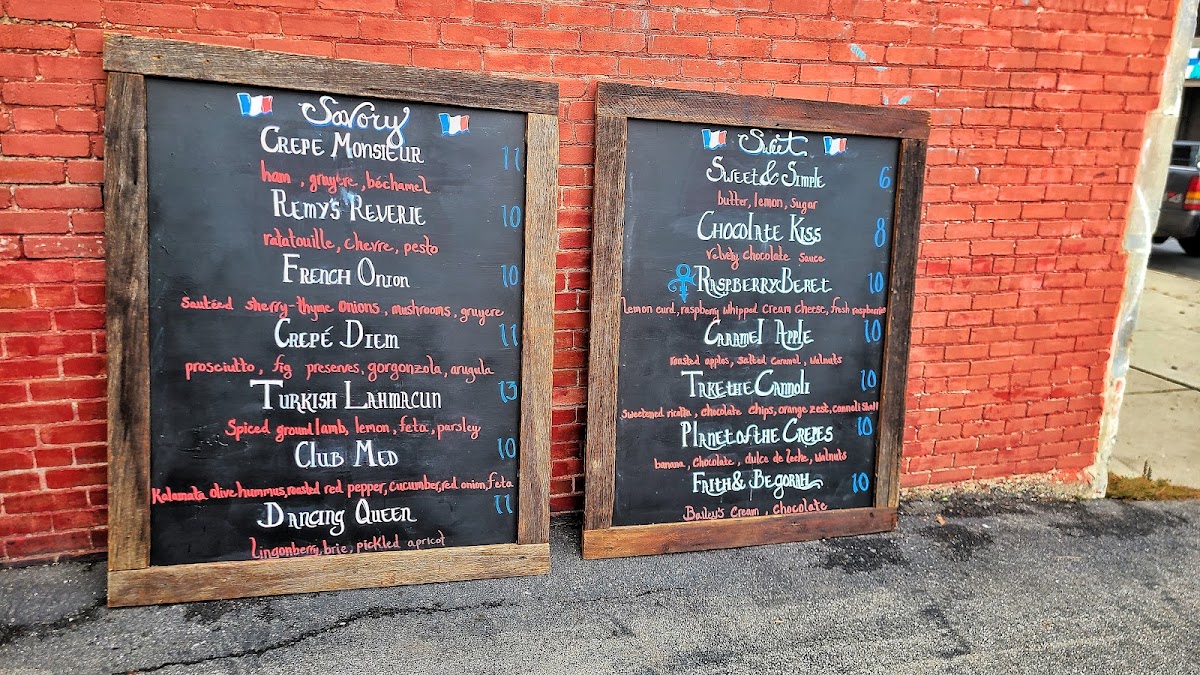 Savory
Crepe Monsieur 11
ham, gruyere, béchamel
Remy's Reverie 10
ratatouille, chevre, pesto
French Onion 10
Sautéed sherry-thyme onions, mushrooms, gruyere
Crepé Diem 11
prosciutto, fig preserves, gorgonzola, arugula
Turkish Lahmacun 13
Spiced ground lamb, lemon, feta, parsley
Club Med 10
Kalamata olive hummus, roasted red pepper, cucumber, red onion, feta
Dancing Queen 11
Lingonberry, brie, pickled apricot
Suit
Sweet & Simple 6
butter, lemon, sugar
Chocolate Kiss 8
velvety chocolate sauce
Raspberry Beret 10
lemon curd, raspberry whipped cream cheese, fresh raspberries
Caramel Apple 10
roasted apples, salted caramel, walnuts
Take the Cannoli 10
Sweetened ricotta, chocolate chips, orange zest, cannoli shell
Planet of the Crepes 10
banana, chocolate, dulce de leche, walnuts
Faith & Begorah 10
Bailey's Cream, chocolate